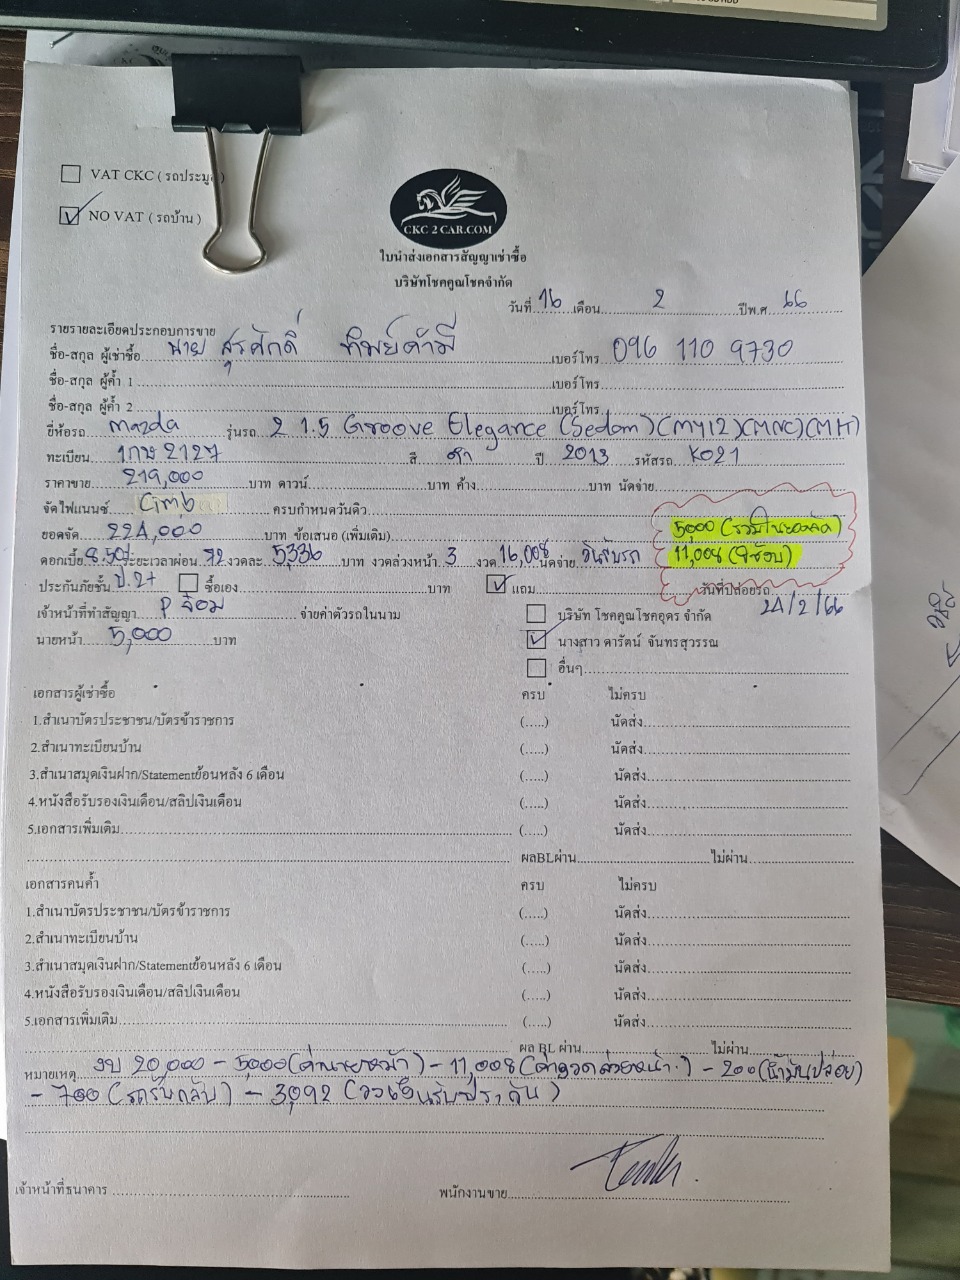 VAT CKC ( รถประมู )
NO VAT ( รถบ้าน )
CKC 2 CAR.COM
ใบนำส่งเอกสารสัญญาเช่าซื้อ
บริษัทโชคคูณโชคจำกัด
วันที่ 16 เดือน 2 ปีพ.ศ 66
รายรายละเอียดประกอบการขาย
ชื่อ-สกุล ผู้เช่าซื้อ นาย สุรศักดิ์ ทิพย์คำมี เบอร์โทร 096 110 9730
ชื่อ-สกุล ผู้ค้ำ 1 เบอร์โทร
ชื่อ-สกุล ผู้ค้ำ 2 เบอร์โทร
ยี่ห้อรถ mazda รุ่นรถ 2 1.5 Groove Elegance (Sedan) (MY12)(MNC)(MT)
ทะเบียน 1กษ 2127 สี ดำ ปี 2013 รหัสรถ K021
ราคาขาย 219,000 บาท ดาวน์ บาท ค้าง บาท นัดจ่าย
จัดไฟแนนซ์ Cimb ครบกำหนดวันดิว
ยอดจัด 224,000 บาท ข้อเสนอ (เพิ่มเติม) 5,000 (รวมในยอดจัด)
ดอกเบี้ย 8.50% ระยะเวลาผ่อน 72 งวดละ 5,336 บาท งวดล่วงหน้า 3 งวด 16,008 นัดจ่าย วันรับรถ 11,008 (พี่ช้อบ)
ประกันภัยชั้น ป.2+ ซื้อเอง บาท แถม วันที่ปล่อยรถ 24/2/66
เจ้าหน้าที่ทำสัญญา P จ๋อม จ่ายค่าตัวรถในนาม บริษัท โชคคูณโชคอุดร จำกัด
นายหน้า 5,000 บาท นางสาว ดารัตน์ จันทรสุวรรณ
อื่นๆ
เอกสารผู้เช่าซื้อ ครบ ไม่ครบ
1.สำเนาบัตรประชาชน/บัตรข้าราชการ (.....) นัดส่ง
2.สำเนาทะเบียนบ้าน (.....) นัดส่ง
3.สำเนาสมุดเงินฝาก/Statementย้อนหลัง 6 เดือน (.....) นัดส่ง
4.หนังสือรับรองเงินเดือน/สลิปเงินเดือน (.....) นัดส่ง
5.เอกสารเพิ่มเติม (.....) นัดส่ง
ผลBLผ่าน ไม่ผ่าน
เอกสารคนค้ำ ครบ ไม่ครบ
1.สำเนาบัตรประชาชน/บัตรข้าราชการ (.....) นัดส่ง
2.สำเนาทะเบียนบ้าน (.....) นัดส่ง
3.สำเนาสมุดเงินฝาก/Statementย้อนหลัง 6 เดือน (.....) นัดส่ง
4.หนังสือรับรองเงินเดือน/สลิปเงินเดือน (.....) นัดส่ง
5.เอกสารเพิ่มเติม (.....) นัดส่ง
ผล BL ผ่าน ไม่ผ่าน
หมายเหตุ งบ 20,000 - 5,000 (ค่านายหน้า) - 11,008 (ค่างวดล่วงหน้า) - 200 (น้ำมันปล่อย)
- 700 (รถรับกลับ) - 3,092 (ประกัน)
เจ้าหน้าที่ธนาคาร พนักงานขาย